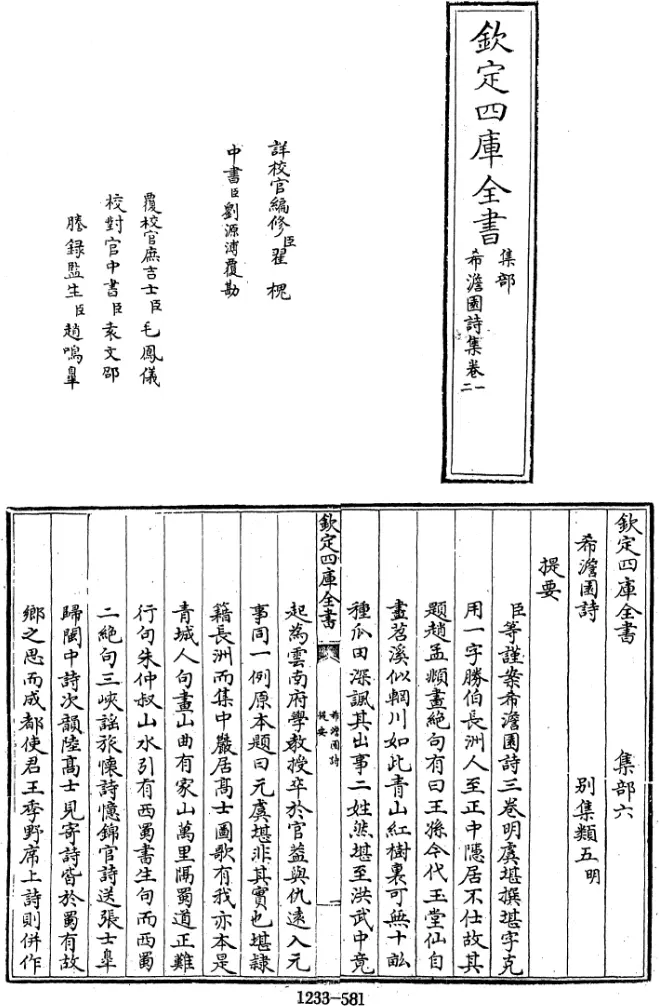 欽定四庫全書
集部
希澹園詩集卷一
二
詳校官編修臣翟槐
中書臣劉源溥覆勘
覆校官庶吉士臣毛鳳儀
校對官中書臣袁文邵
謄錄監生臣趙鳴臯
欽定四庫全書 集部六
希澹園詩 别集類五明
提要
臣等謹案希澹園詩三卷明虞堪撰堪字克
用一字勝伯長洲人至正中隠居不仕故其
題趙孟頫畫絶句有曰王孫今代玉堂仙自
畫苕溪似輞川如此青山紅樹裏可無十畝
種瓜田深諷其出事二姓然堪至洪武中竟
欽定四庫全書
希澹園詩
提要
起為雲南府學教授卒於官葢與仇逺入元
事同一例原本題曰元虞堪非其實也堪隷
籍長洲而集中嚴居髙士圖歌有我亦本是
青城人句畫山曲有家山萬里隔蜀道正難
行句朱仲叔山水引有西蜀書生句而西蜀
二絶句三峽謡旅懐詩憶錦官詩送張士臯
歸閬中詩次韻陸髙士見寄詩皆於蜀有故
鄉之思而成都使君王季野席上詩則併作
1233-581